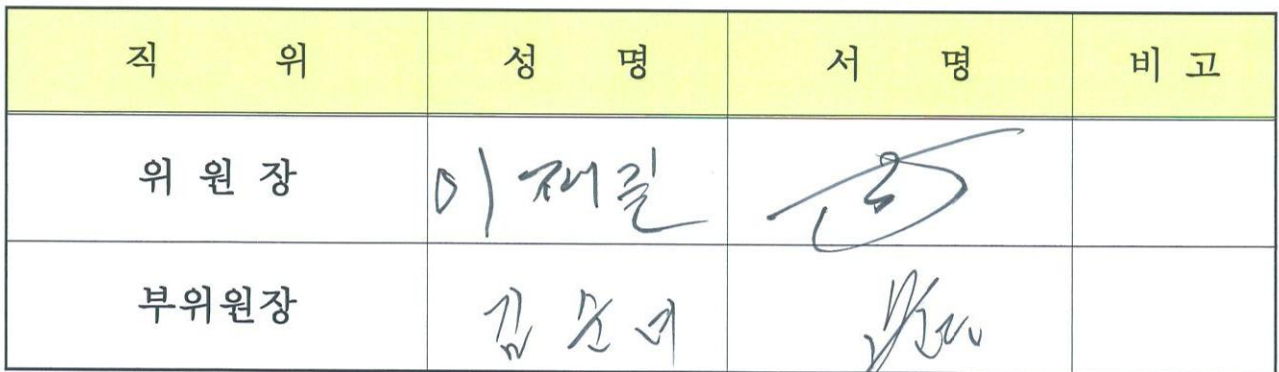 직 위 성 명 서 명 비 고
위 원 장 이재길
부위원장 김